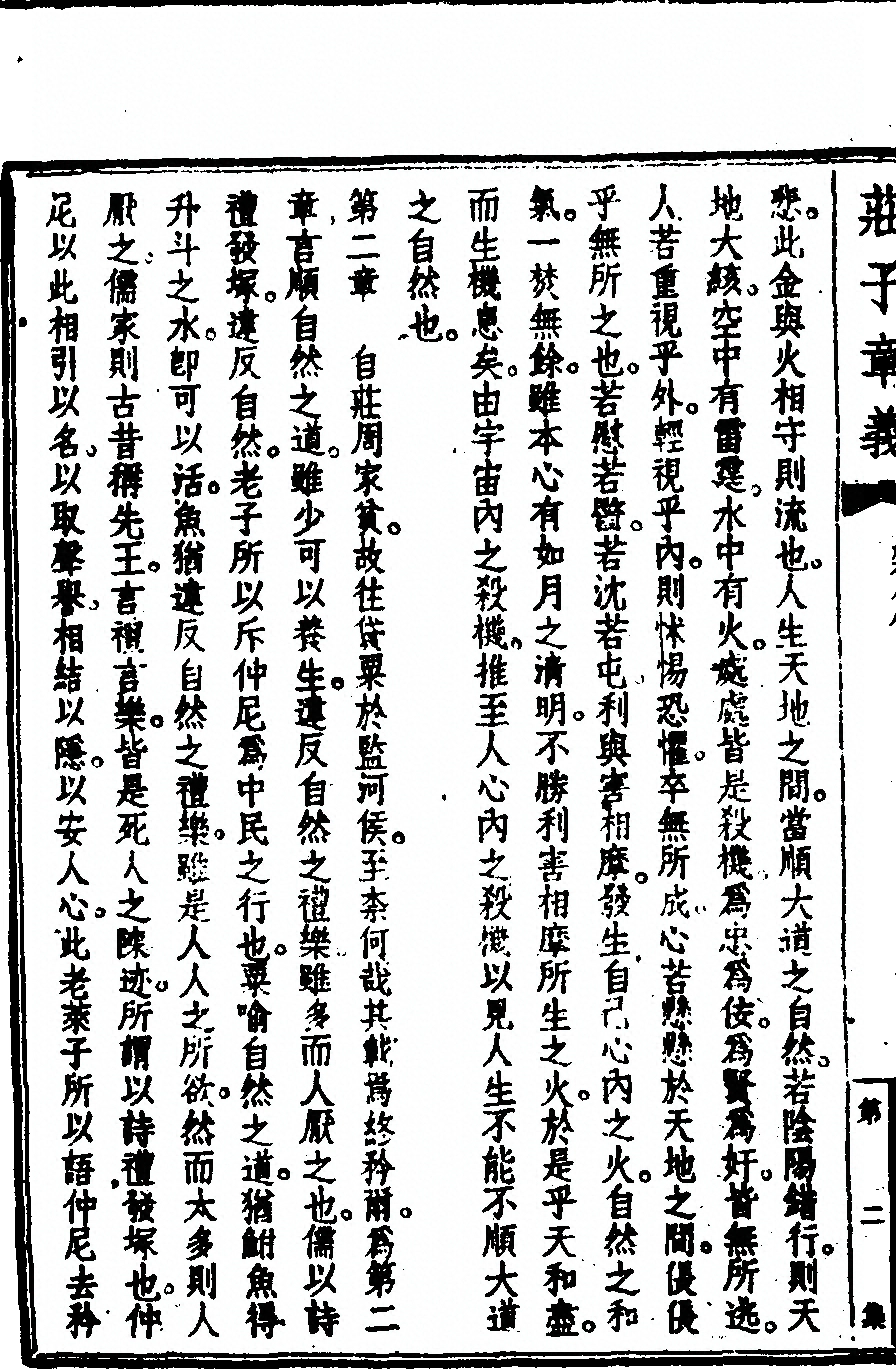 莊子章義
第二集
悲。此金與火相守則流也。人生天地之間。當順大道之自然。若陰陽錯行。則天
地大絯。空中有雷霆。水中有火。處處皆是殺機。爲忠爲佞。爲賢爲奸。皆無所逃。
人若重視乎外。輕視乎內。則怵惕恐懼。卒無所成。心若懸懸於天地之間。偎偎
乎無所之也。若慰若暋。若沈若屯。利與害相摩。發生自己心內之火。自然之和
氣。一焚無餘。雖本心有如月之清明。不勝利害相摩所生之火。於是乎天和盡。
而生機息矣。由宇宙內之殺機。推至人心內之殺機。以見人生不能不順大道
之自然也。
第二章　自莊周家貧。故往貸粟於監河侯。至柰何哉其載焉終矜爾。爲第二
章。言順自然之道。雖少可以養生。違反自然之禮樂。雖多而人厭之也。儒以詩
禮發塚。違反自然。老子所以斥仲尼爲中民之行也。粟喻自然之道。猶鮒魚得
升斗之水。卽可以活。魚猶違反自然之禮樂。雖是人人之所欲。然而太多則人
厭之。儒家則古昔稱先王。言禮言樂。皆是死人之陳迹。所謂以詩禮發塚也。仲
尼以此相引以名。以取聲譽。相結以隱。以安人心。此老萊子所以語仲尼去矜